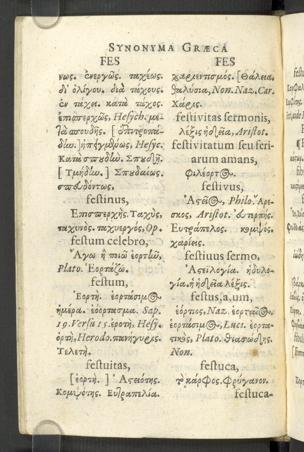 SYNONYMA GRÆCA
FES
νως. ἐνεργῶς. ταχέως.
δι᾽ ὀλίγου. διὰ τάχους.
ἐν τάχει. κατὰ τάχος.
Hesych. με-
τὰ σπουδῆς.
Hesyc.
Κατὰ σπουδὴν. Σπουδῇ.
[Τμήδην.] Σπουδαίως
σπεύδοντως.
festinus,
Ἐπισπερχής. Ταχὺς,
ταχυνὸς. ταχυεργός, Op.
festum celebro,
Ἄγω ἢ ποιῶ ἑορτὴν,
Plato. Ἑορτάζω.
festum,
Ἑορτή. ἑορτάσιμος
ἡμέρα. ἑόρτασμα. Sap.
19. Versu 15. ἑροτή, Hesy.
ὀρτή, Herodo. πανήγυρις.
Τελετή.
festiuitas,
[ἑορτή.] Ἀστειότης.
Κομψότης. Εὐτραπελία.
FES
χαριεντισμός. [Θάλεια.
Non. Naz. Car.
Χάρις.
festiuitas sermonis,
λέξις ἡδεῖα, Aristot.
festiuitatum seu feri-
arum amans,
φιλέορτος.
festiuus,
Ἀστεῖος, Philo. Ἀρε-
σκος, Aristot. Εὐτερπής.
Εὐτράπελος. κομψός.
χαρίεις.
festiuus sermo,
Ἀστιολογία. ἡδυλο-
γία. ἡ ἡδεῖα λέξις.
festus, a, um,
ἑόρτιος, Naz. ἑορταῖος,
ἑορτάσιμος, Luci. ἑορτα-
στικὸς, Plato.
Non.
festuca,
τὸ κάρφος. Φρύγανον.
festuca-